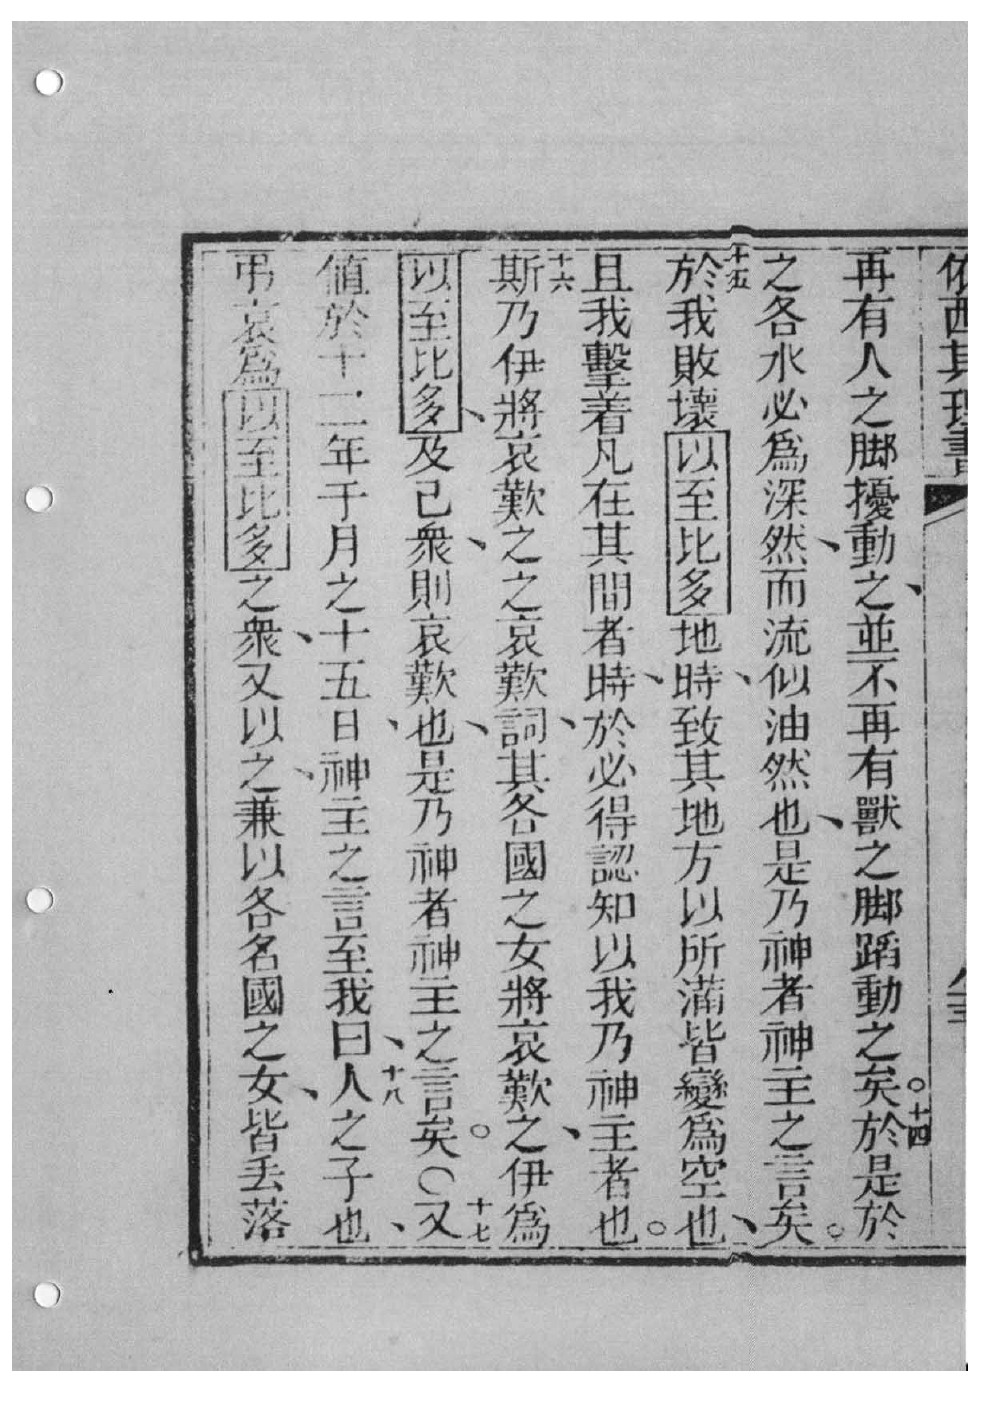 依西其理書
再有人之脚擾動之、並不再有獸之脚蹈動之矣。十四於是於
之各水必爲深然、而流似油然也、是乃神者神主之言矣。
十五於我敗壞以至比多地時、致其地方以所滿皆變爲空也、
且我擊着凡在其間者時、於必得認知以我乃神主者也。
十六斯乃伊將哀歎之之哀歎詞、其各國之女將哀歎之、伊爲
以至比多、及已衆、則哀歎也、是乃神者神主之言矣。○十七又
値於十二年于月之十五日、神主之言至我曰、十八人之子也、
弔哀爲以至比多之衆、又以之、兼以各名國之女、皆丢落